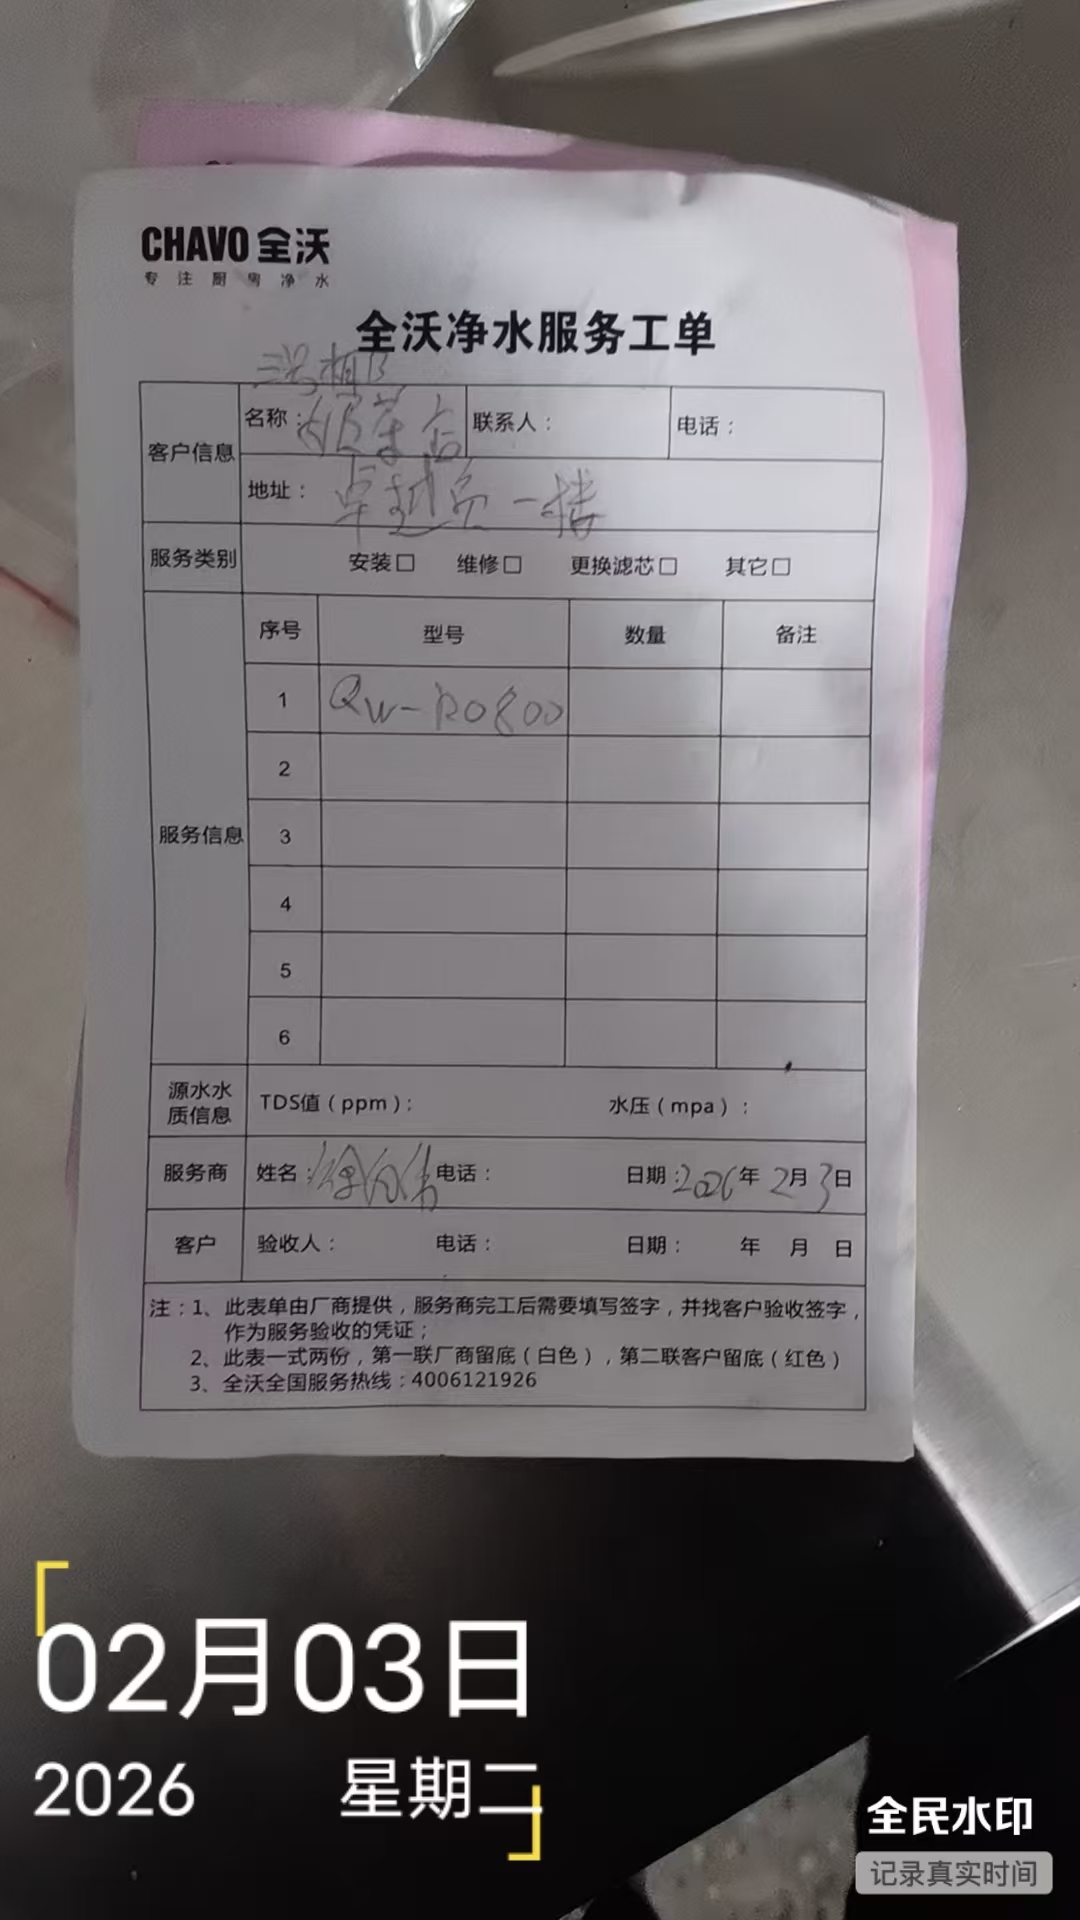 CHAVO 全沃
专注厨房净水
全沃净水服务工单
客户信息
名称：
联系人：
电话：
地址： 卓越 一楼
服务类别 安装□ 维修□ 更换滤芯□ 其它□
服务信息
序号 型号 数量 备注
1 QW-RO800
2
3
4
5
6
源水水质信息 TDS值（ppm）： 水压（mpa）：
服务商 姓名： 电话： 日期：2026年 2月 3日
客户 验收人： 电话： 日期： 年 月 日
注：1、此表单由厂商提供，服务商完工后需要填写签字，并找客户验收签字，
作为服务验收的凭证；
2、此表一式两份，第一联厂商留底（白色），第二联客户留底（红色）
3、全沃全国服务热线：4006121926
02月03日
2026 星期二
全民水印
记录真实时间